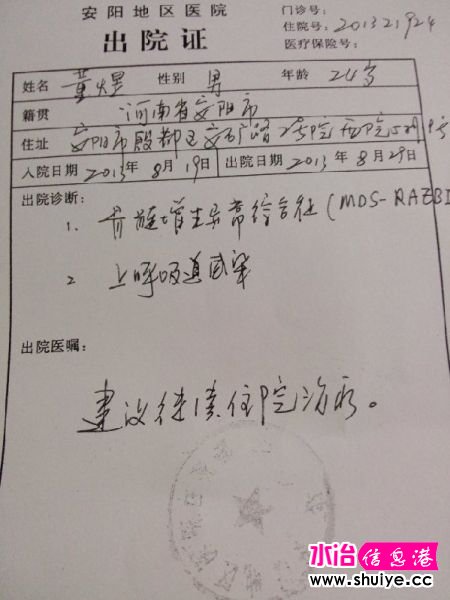 安阳地区医院
门诊号:
出院证
住院号: 201321924
医疗保险号:
姓名 黄煜 性别 男 年龄 24岁
籍贯 河南省安阳市
住址 安阳市殷都区安 路 号院 西院 号
入院日期 2013年8月19日 出院日期 2013年8月29日
出院诊断:
1. 骨髓增生异常综合征(MDS-RAEBI
2 上呼吸道感染
出院医嘱:
建议继续住院治疗。
水冶信息港
www.shuiye.cc